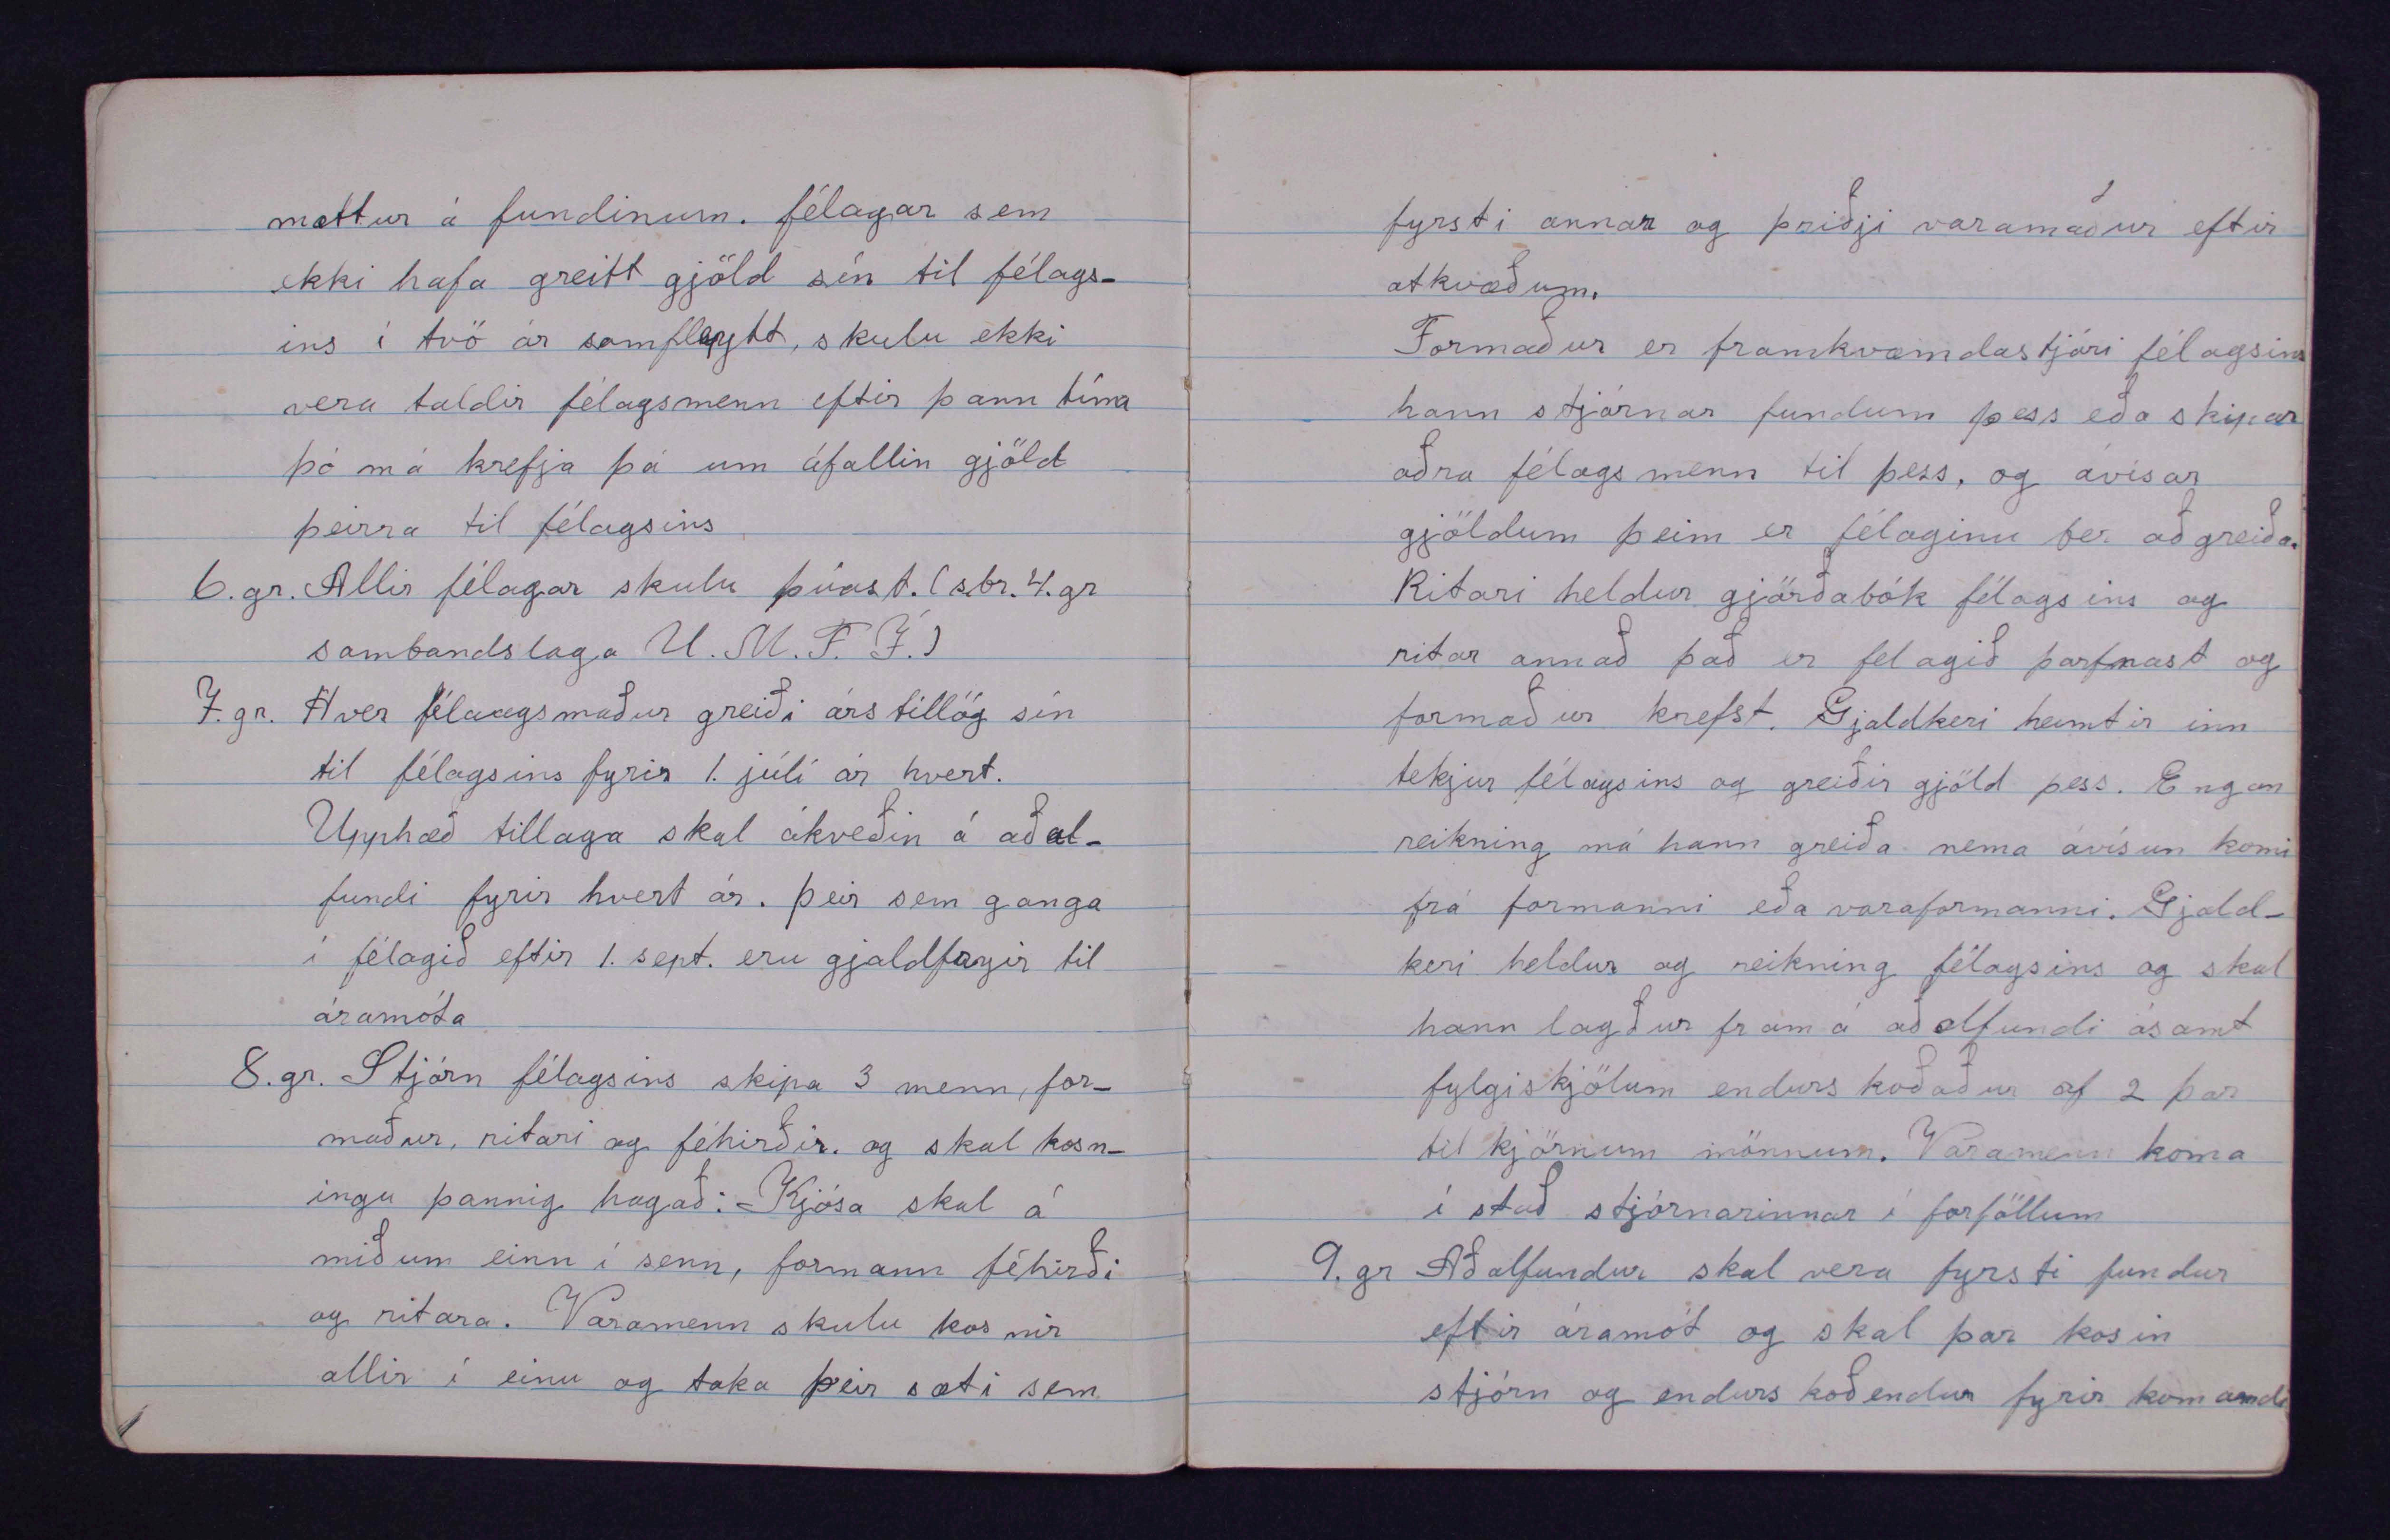 mættur á fundinum. félagar sem
ekki hafa greitt gjöld sín til félags-
ins í tvö ár samfleytt, skulu ekki
vera taldir félagsmenn eftir þann tíma
þó má krefja þá um áfallin gjöld
þeirra til félagsins
6. gr. Allir félagar skulu þúast. (sbr. 4. gr
sambandslaga U. M. F. Í.)
7. gr. Hver félaagsmaður greiði árstillög sín
til félagsins fyrir 1. júlí ár hvert.
Upphæð tillaga skal ákveðin á aðal-
fundi fyrir hvert ár. þeir sem ganga
í félagið eftir 1. sept. eru gjaldfryir til
áramóta
8. gr. Stjórn félagsins skipa 3 menn, for-
maður, ritari og féhirðir. og skal kosn-
ingu þannig hagað: - Kjósa skal á
miðum einn í senn, formann féhirði
og ritara. Varamenn skulu kosnir
allir í einu og taka þeir sæti sem
fyrsti annar og þriðji varamaður eftir
atkvæðum.
Formaður er framkvæmdastjóri félagsins
hann stjórnar fundum þess eða skipar
aðra félagsmenn til þess, og ávísar
gjöldum þeim er félaginu ber að greiða.
Ritari heldur gjörðabók félagsins og
ritar annað það er felagið þarfnast og
formaður krefst. Gjaldkeri heimtir inn
tekjur félagsins og greiðir gjöld þess. Engan
reikning má hann greiða nema ávísun komi
frá formanni eða varaformanni. Gjald-
keri heldur og reikning félagsins og skal
hann lagður fram á aðalfundi ásamt
fylgiskjölum endurskoðaður af 2 þar
til kjörnum mönnum. Varamenn koma
í stað stjórnarinnar í forföllum
9. gr Aðalfundur skal vera fyrsti fundur
eftir áramót og skal þar kosin
stjórn og endurskoðendur fyrir komandi